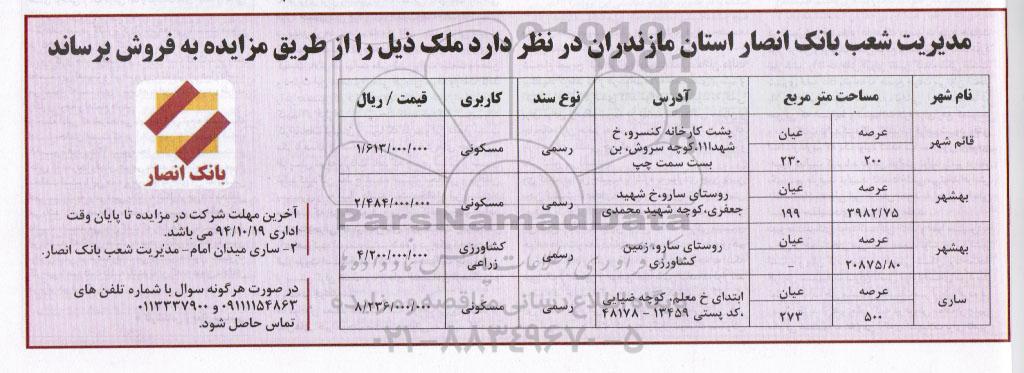 مدیریت شعب بانک انصار استان مازندران در نظر دارد ملک ذیل را از طریق مزایده به فروش برساند
نام شهر مساحت متر مربع آدرس نوع سند کاربری قیمت / ریال
قائم شهر
عرصه عیان
۲۰۰ ۲۳۰
پشت کارخانه کنسرو، خ
شهدا۱۱،کوچه سروش، بن
بست سمت چپ
رسمی مسکونی ۱/۶۱۳/۰۰۰/۰۰۰
بهشهر
عرصه عیان
۳۹۸۲/۷۵ ۱۹۹
روستای سارو،خ شهید
جعفری،کوچه شهید محمدی
رسمی مسکونی ۲/۴۸۴/۰۰۰/۰۰۰
بهشهر
عرصه عیان
۲۰۸۷۵/۸۰ -
روستای سارو، زمین
کشاورزی
رسمی
کشاورزی
زراعی
۴/۲۰۰/۰۰۰/۰۰۰
ساری
عرصه عیان
۵۰۰ ۲۷۳
ابتدای خ معلم، کوچه ضیایی
،کد پستی ۱۳۴۵۹ - ۴۸۱۷۸
رسمی مسکونی ۸/۲۳۶/۰۰۰/۰۰۰
بانک انصار
آخرین مهلت شرکت در مزایده تا پایان وقت
اداری ۹۴/۱۰/۱۹ می باشد.
۲- ساری میدان امام- مدیریت شعب بانک انصار.
در صورت هرگونه سوال با شماره تلفن های
۰۹۱۱۱۱۵۴۸۶۳ و ۰۱۱۳۳۳۷۹۰۰
تماس حاصل شود.
ParsNamadData
۰۲۱-۸۸۳۴۹۶۷۰-۵